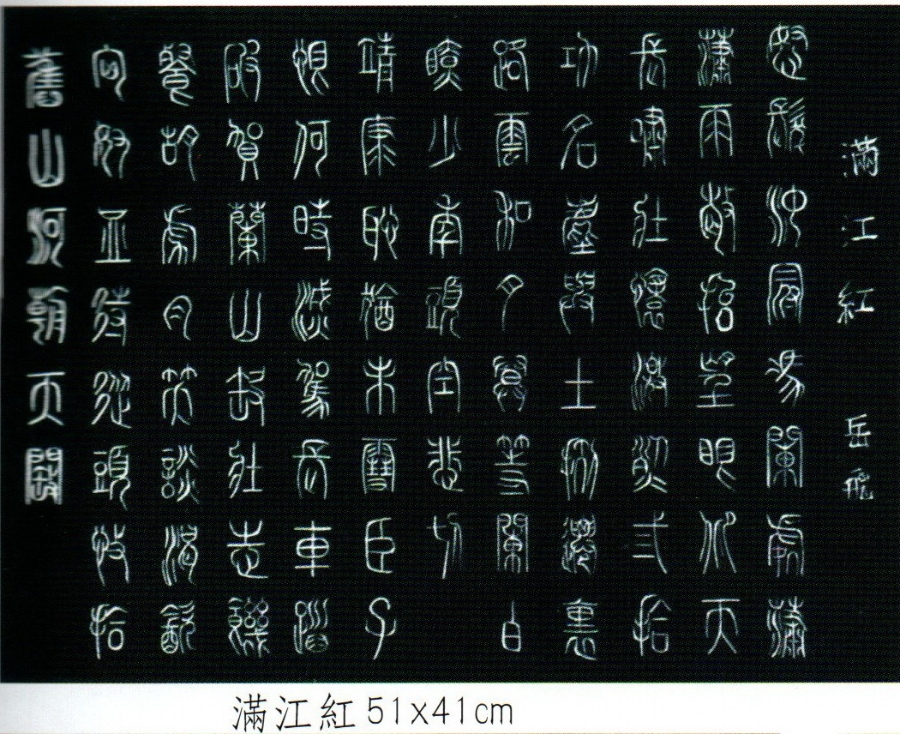 滿江紅
岳飛
怒髮沖冠憑闌處瀟
瀟雨歇抬望眼仰天
長嘯壯懷激烈弎拾
功名塵與土捌遷裏
路雲和月莫等閒白
瞭少年頭空悲切
靖康恥猶未雪臣子
恨何時滅駕長車踏
破賀蘭山缺壯志饑
餐胡虜肉笑談渴飲
匈奴血待從頭收拾
舊山河朝天闕
滿江紅51x41cm